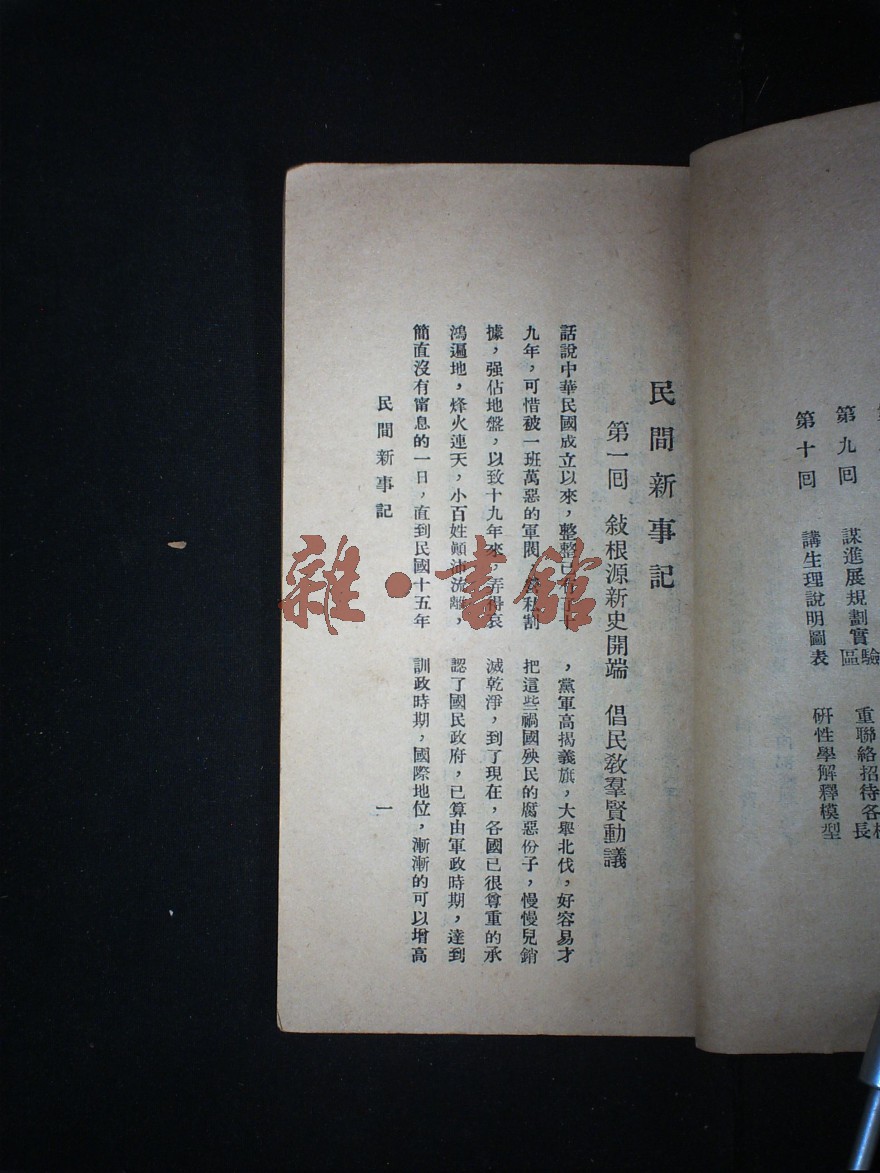 第九回 謀進展規劃實驗區 重聯絡招待各校長
第十回 講生理說明圖表 研性學解釋模型
民間新事記
第一回 敍根源新史開端 倡民教羣賢動議
話說中華民國成立以來，整整已有了十
九年，可惜被一班萬惡的軍閥，私割
據，强佔地盤，以致十九年來，弄得哀
鴻遍地，烽火連天，小百姓顛沛流離，
簡直沒有甯息的一日，直到民國十五年
，黨軍高揭義旗，大舉北伐，好容易才
把這些禍國殃民的腐惡份子，慢慢兒銷
滅乾淨，到了現在，各國已很尊重的承
認了國民政府，已算由軍政時期，達到
訓政時期，國際地位，漸漸的可以增高
民間新事記 一
雜·書館